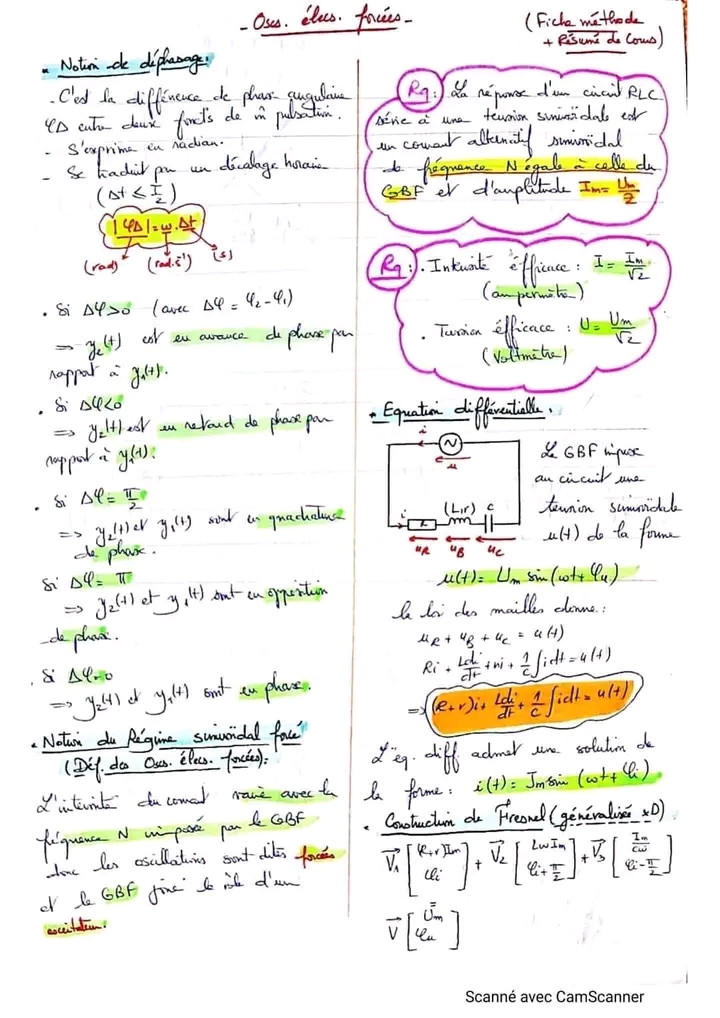 - Oscs. élecs. forcées -
(Fiche méthode
+ Résumé de Cours)
* Notion de déphasage:
- C'est la différence de phase angulaire
φΔ entre deux foncts de m̂ pulsation.
- S'exprime en radian.
- Se traduit par un décalage horaire
(Δt ≤ T/2)
|φΔ| = ω.Δt
(rad) (rad.s⁻¹) (s)
. Si Δφ>0 (avec Δφ = φ₂ - φ₁)
⇒ y₂(t) est en avance de phase par
rapport à y₁(t).
. Si Δφ<0
⇒ y₂(t) est en retard de phase par
rapport à y₁(t).
. Si Δφ = π/2
⇒ y₂(t) et y₁(t) sont en quadrature
de phase.
Si Δφ = π
⇒ y₂(t) et y₁(t) sont en opposition
de phase.
. Si Δφ=0
⇒ y₂(t) et y₁(t) sont en phase.
. Notion du Régime sinusoïdal forcé
(Déf. des Oscs. élecs. forcées):
L'intensité du courant varie avec la
fréquence N imposée par le GBF
donc les oscillations sont dites forcées
et le GBF joue le rôle d'un
excitateur.
Rq: La réponse d'un circuit RLC
série à une tension sinusoïdale est
un courant alternatif sinusoïdal
de fréquence N égale à celle du
GBF et d'amplitude Im = Um/Z
Rq: . Intensité éfficace : I = Im/√2
(ampermètre)
. Tension éfficace : U = Um/√2
(Voltmètre)
* Equation différentielle.
i
N
u
(L,r) C
i R
uR uB uC
Le GBF impose
au circuit une
tension sinusoïdale
u(t) de la forme
u(t) = Um sin(ωt + φu)
la loi des mailles donne:
uR + uB + uC = u(t)
Ri + Ldi/dt + ri + 1/C ∫idt = u(t)
⇒ (R+r)i + Ldi/dt + 1/C ∫idt = u(t)
L'éq. diff admet une solution de
la forme: i(t) = Im sin(ωt + φi)
. Construction de Fresnel (généralisée xD)
V₁→ [(R+r)Im ; φi] + V₂→ [LωIm ; φi+π/2] + V₃→ [Im/Cω ; φi-π/2]
=
V→ [Um ; φu]
Scanné avec CamScanner